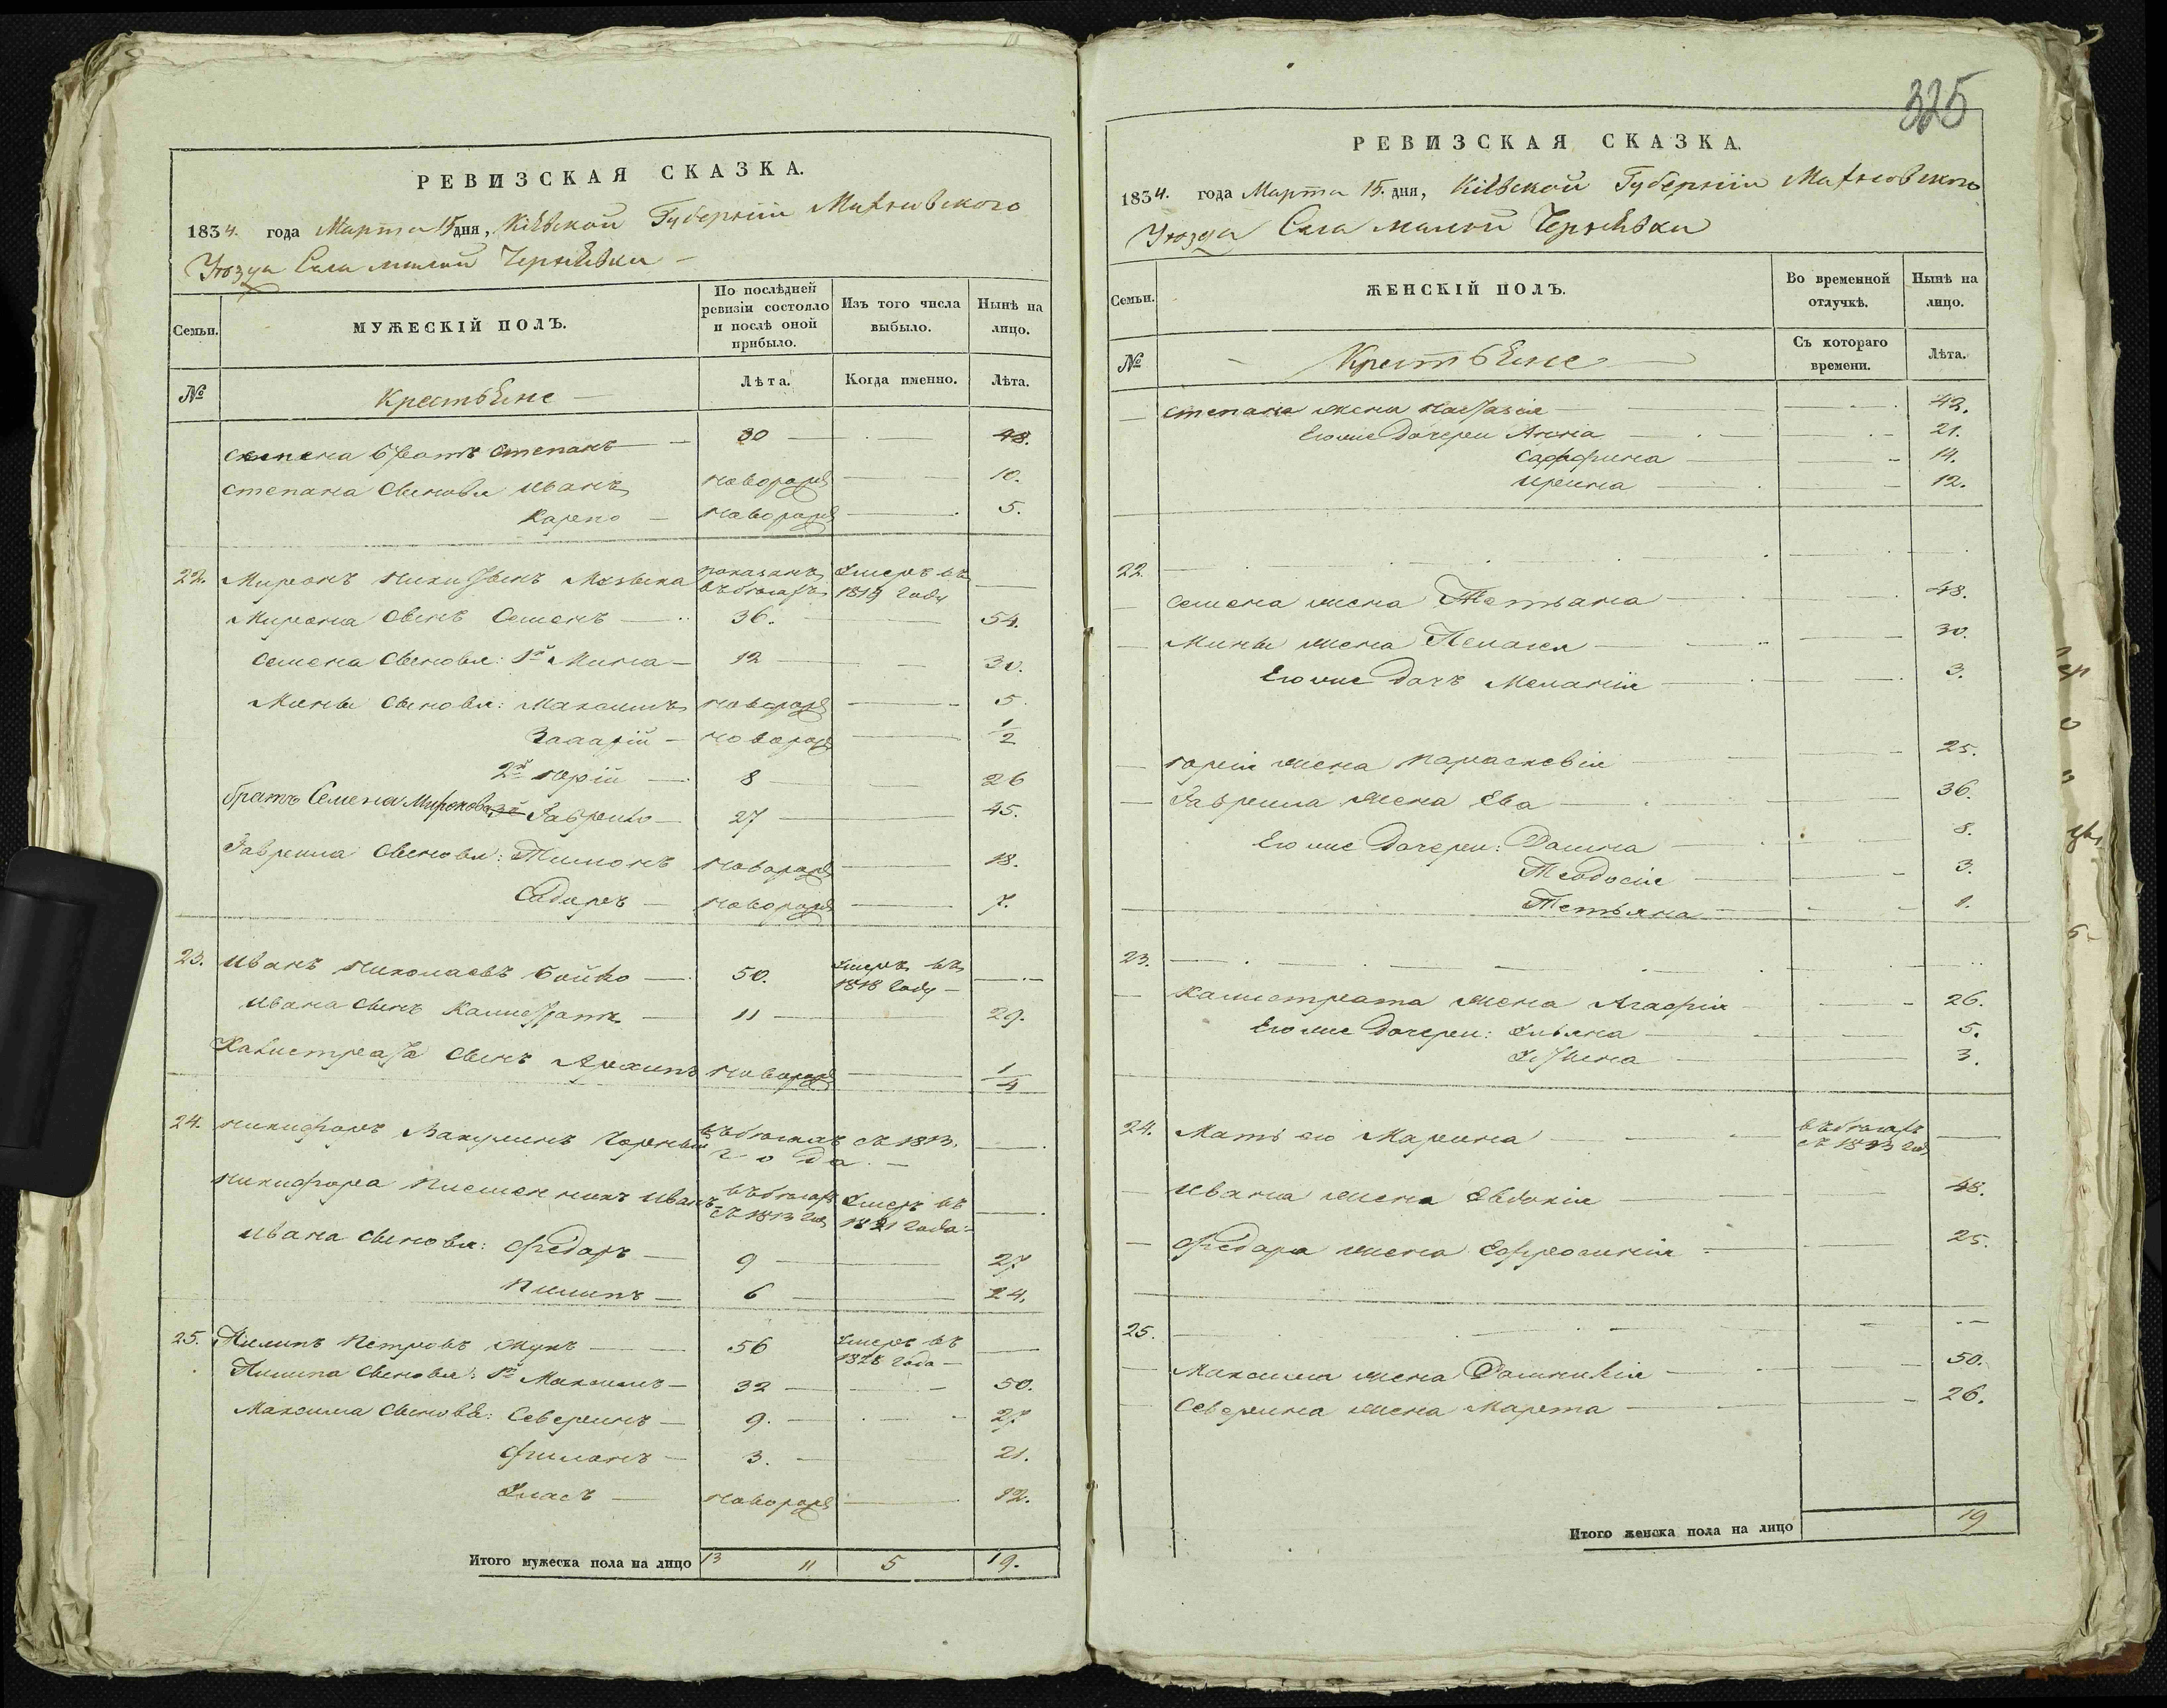 РЕВИЗСКАЯ СКАЗКА.
1834. года Марта 15 дня, Кіевской Губерніи Махновского
Уѣзда Села малой Чернѣвки
Семьи.
МУЖЕСКІЙ ПОЛЪ.
По послѣдней ревизіи состояло и послѣ оной прибыло.
Изъ того числа выбыло.
Нынѣ на лицо.
№
Крестьяне
Лѣта.
Когда именно.
Лѣта.
братъ Степанъ 30 48.
Степана Сыновья Иванъ новорож 10.
Карпо новорож 5.
22. Миронъ показанъ въ бѣгахъ Умеръ въ 1819 году
Мирона Сынъ Семенъ 36. 54.
Семена Сыновья: 1й Мина 12 30.
Мины Сыновья: Максимъ новорож 5.
новорож 1/2
2й Юрій 8 26
братъ Семена Миронова 3й Гаврило 27 45.
Гаврила Сыновья: Тимонъ новорож 18.
новорож 7.
23. Иванъ Николаевъ Бойко 50. Умеръ въ 1818 году
Ивана Сынъ Калистратъ 11 29.
Калистрата Сынъ Архипъ новорож 1/4
24. Никифоръ Вакулинъ Чорный въ бѣгахъ съ 1813. года.
Никифора племенникъ Иванъ въ бѣгахъ съ 1813 год Умеръ въ 1821 года
Ивана Сыновья: Федоръ 9 27
Пилипъ 6 24.
25. Пилипъ Петровъ Жукъ 56 Умеръ въ 1828 года
Пилипа Сыновья: 1й Максимъ 32 50.
Максима Сыновья: Северинъ 9. 27
Филонъ 3. 21.
Уласъ новорож 12.
Итого мужеска пола на лицо 13 11 5 19.
325
РЕВИЗСКАЯ СКАЗКА.
1834. года Марта 15. дня, Кіевской Губерніи Махновского
Уѣзда Села малой Чернѣвки
Семьи.
ЖЕНСКІЙ ПОЛЪ.
Во временной отлучкѣ.
Нынѣ на лицо.
№
Крестьяне
Съ котораго времени.
Лѣта.
Степана жена Настасія 42.
Егоже Дочери 21.
14.
Ирина 12.
22.
Семена жена Тетьяна 48.
Мины жена Пелагея 30.
Егоже Дочь Меланія 3.
Юрія жена Параскевія 25.
Гаврила жена Ева 36.
Егоже Дочери: Домна 8.
Теодосія 3.
Тетьяна 1.
23.
Калистрата жена Агафія 26.
Егоже Дочери: Ульяна 5.
Устина 3.
24. Мать его Марина въ бѣгахъ съ 1813 год
Ивана жена Евдокія 48.
Федора жена Ефросинія 25.
25.
Максима жена Домникія 50.
Северина жена Марта 26.
Итого женска пола на лицо 19